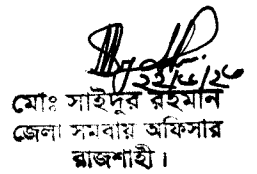 মোঃ সাইদুর রহমান
জেলা সমবায় অফিসার
রাজশাহী।